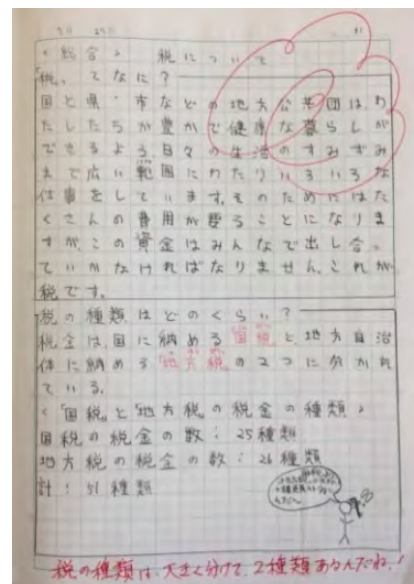 <総合> 税について
「税」ってなに?
国と県・市などの地方公共団は、わ
たしたちが豊かで健康な暮らしが
できるよう、日々の生活のすみずみ
まで広い範囲にわたりいろいろな
仕事をしています。そのためにはた
くさんの費用が要ることになりま
すが、この資金はみんなで出し合っ
ていかなければなりません。これが
税です。
税の種類はどのくらい?
税金は、国に納める「国税」と、地方自治
体に納める「地方税」の2つに分かれ
ている。
<「国税」と「地方税」の税金の種類>
国税の税金の数:25種類
地方税の税金の数:26種類
計:51種類
税の種類は、大きく分けて、2種類あるんだね!